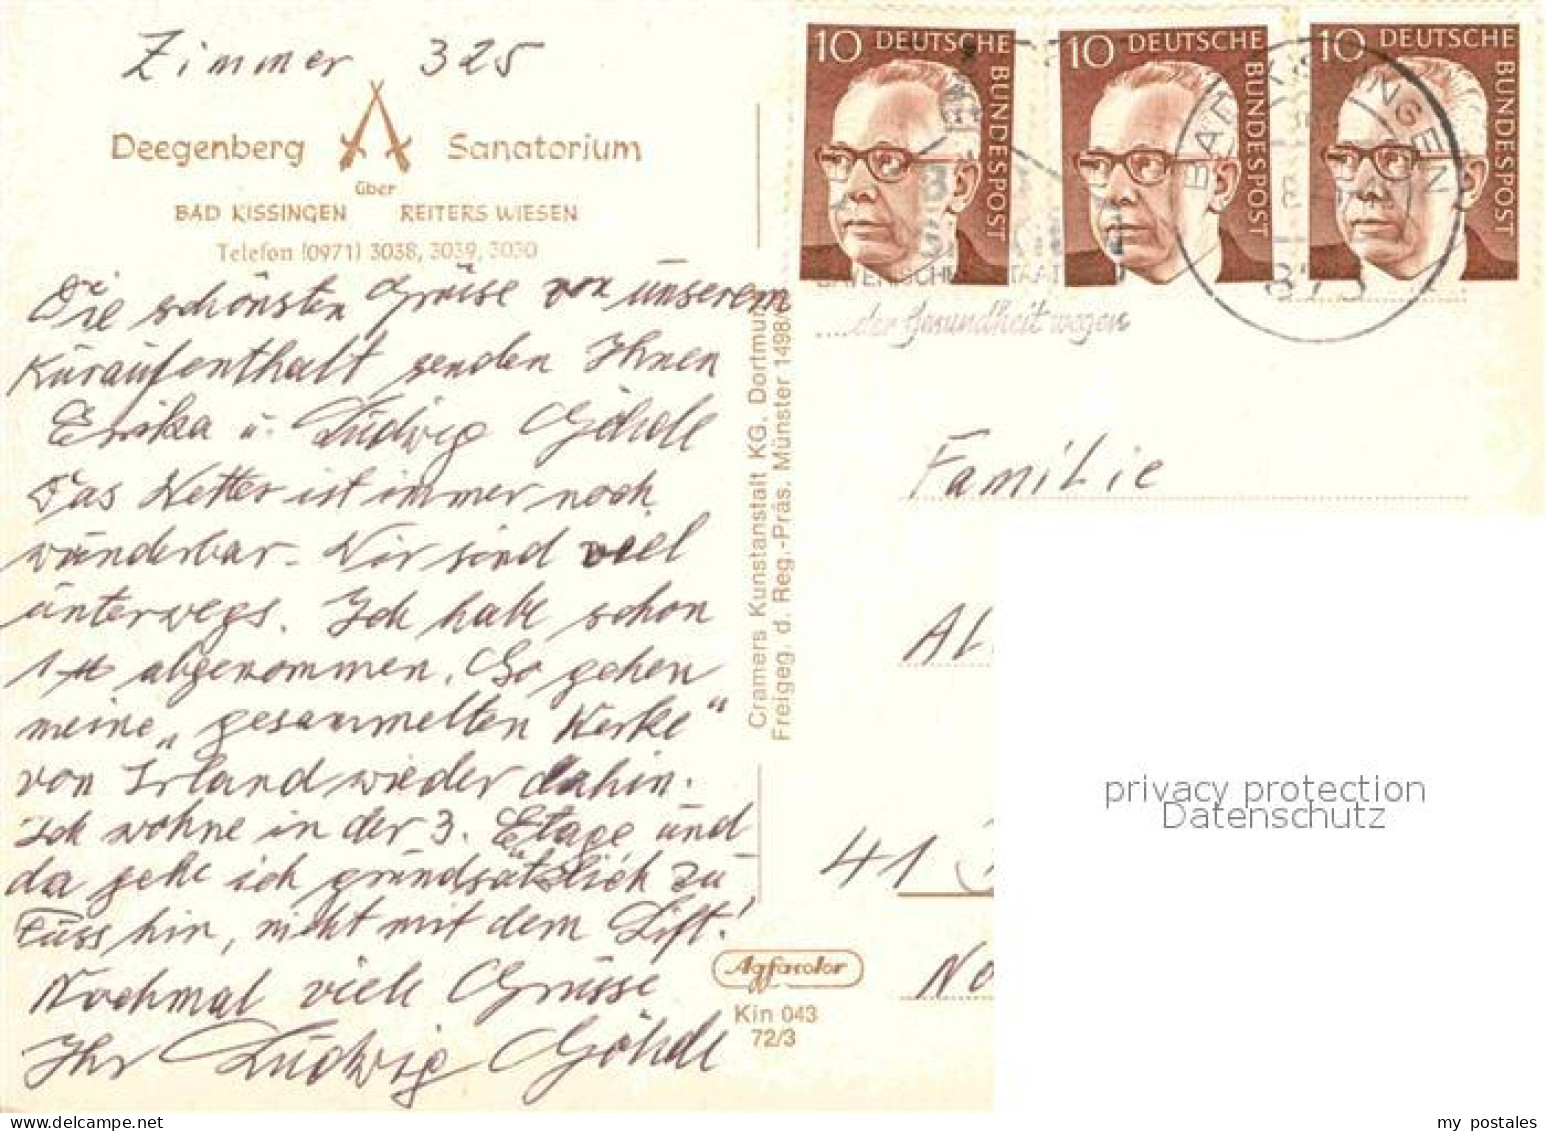 Zimmer 325
Deegenberg Sanatorium
über
BAD KISSINGEN REITERSWIESEN
Telefon (0971) 3038, 3039, 3030
Die schönsten Grüsse von unserem
Kuraufenthalt senden Ihnen
Erika u. Ludwig
Das Wetter ist immer noch
wunderbar. Wir sind viel
unterwegs. Ich habe schon
1 ℔ abgenommen. So gehen
meine „gesammelten Werke"
von Irland wieder dahin.
Ich wohne in der 3. Etage und
da gehe ich grundsätzlich zu
Fuss hin, nicht mit dem Lift!
Nochmal viele Grüsse
Ihr Ludwig
Cramers Kunstanstalt KG. Dortmund
Freigeg. d. Reg.-Präs. Münster 1498/
Agfacolor
Kin 043
72/3
10 DEUTSCHE BUNDESPOST
10 DEUTSCHE BUNDESPOST
10 DEUTSCHE BUNDESPOST
BAD KISSINGEN
BAYERISCHES STAAT
....der Gesundheit wegen
Familie
Al
41
No
privacy protection
Datenschutz
my postales